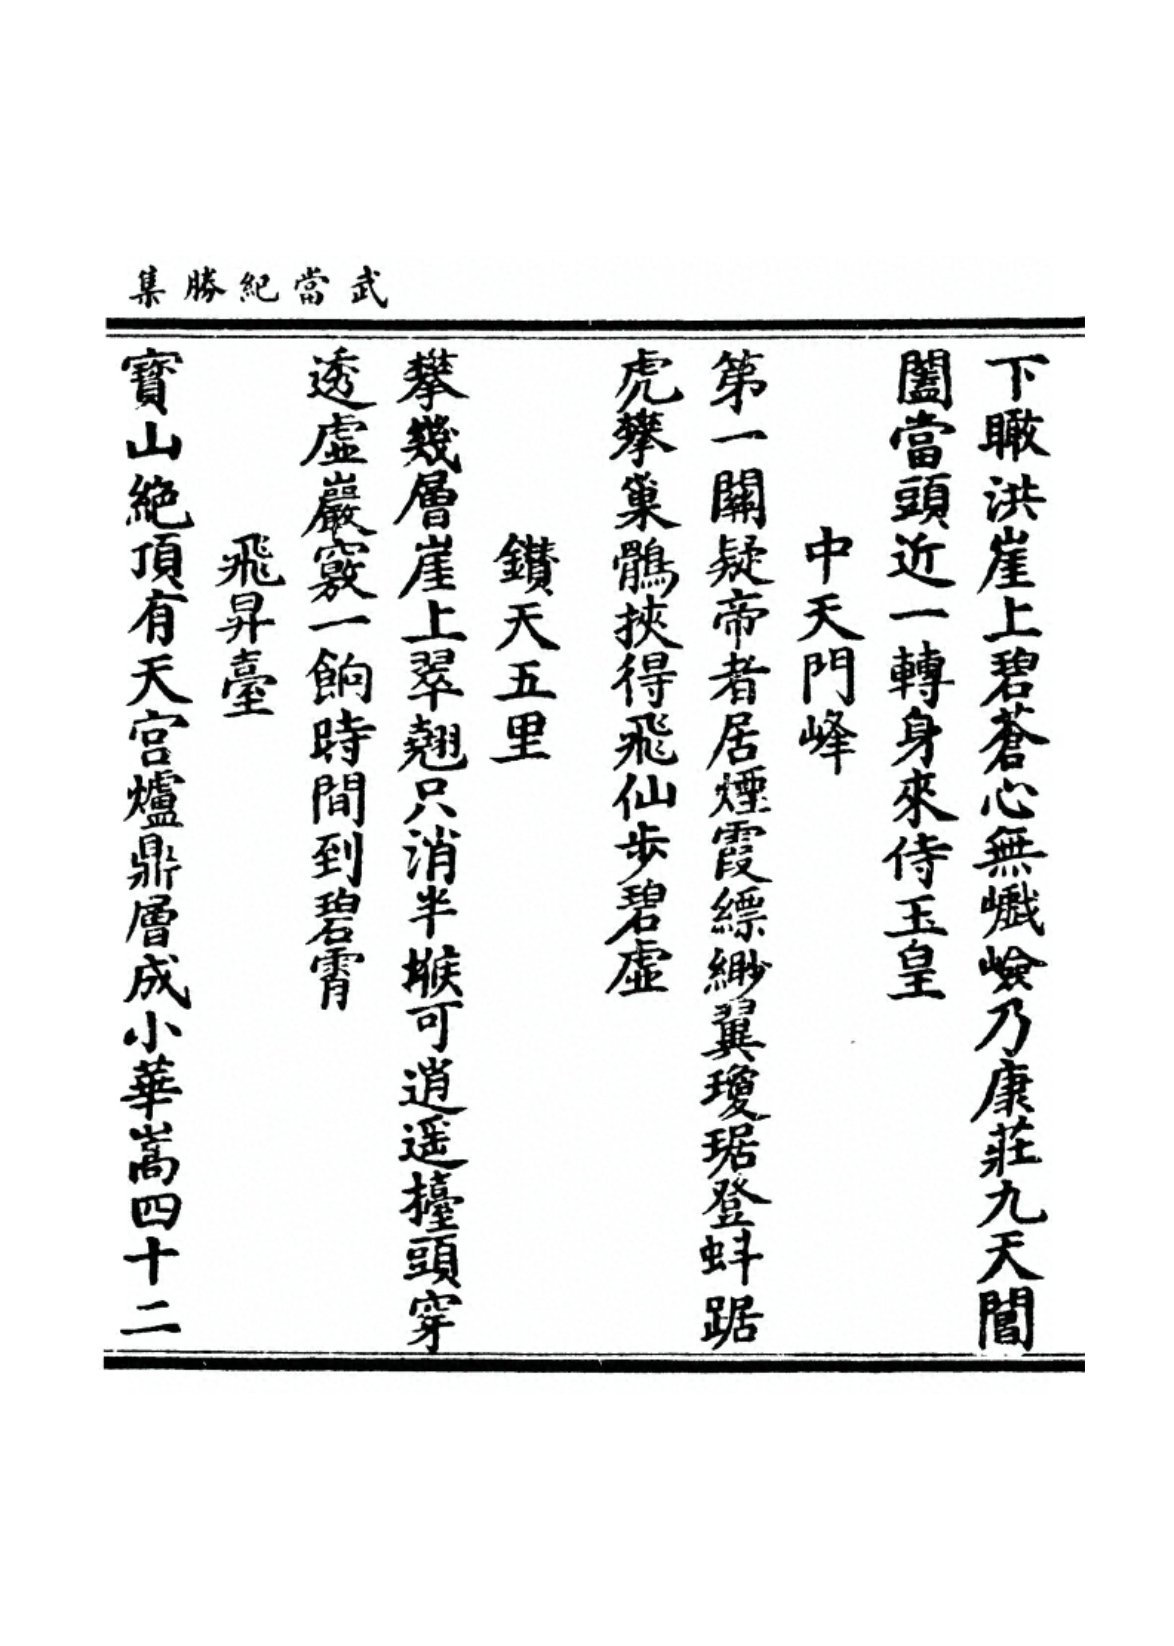 武當紀勝集
下瞰洪崖上碧蒼心無巇嶮乃康莊九天閶
闔當頭近一轉身來侍玉皇
中天門峰
第一關疑帝者居煙霞縹緲翼瓊琚登蚪踞
虎攀巢鶻挾得飛仙步碧虛
鑽天五里
攀幾層崖上翠翹只消半堠可逍遥擡頭穿
透虛巖竅一餉時間到碧霄
飛昇臺
寶山絶頂有天宫爐鼎層成小華嵩四十二